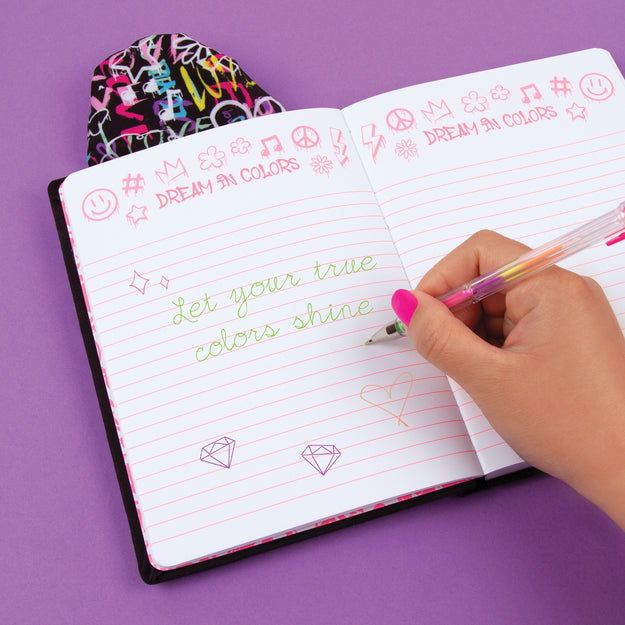 # DREAM IN COLORS
DREAM IN COLORS #
Let your true
colors shine